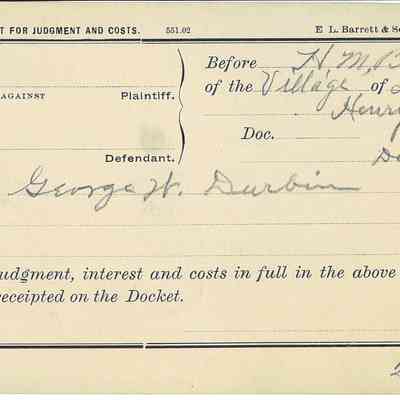 T FOR JUDGMENT AND COSTS. 551.02 E L. Barrett & S
Before H. M. B
AGAINST Plaintiff.
of the Village of
Henry
Doc.
Defendant.
George W. Durbin
udgment, interest and costs in full in the above
receipted on the Docket.